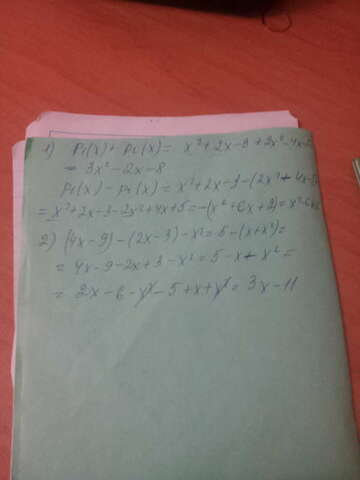 1) P1(x) + P2(x) = x²+2x-3+2x²-4x-5
= 3x²-2x-8
P1(x) - P2(x) = x²+2x-3-(2x²-4x-5)
= x²+2x-3-2x²+4x+5=-(x²+6x+2)=
2) (4x-9)-(2x-3)-x²=5-(x+x²)=
= 4x-9-2x+3-x²=5-x+x²=
= 2x-6-x²-5+x+x²=3x-11